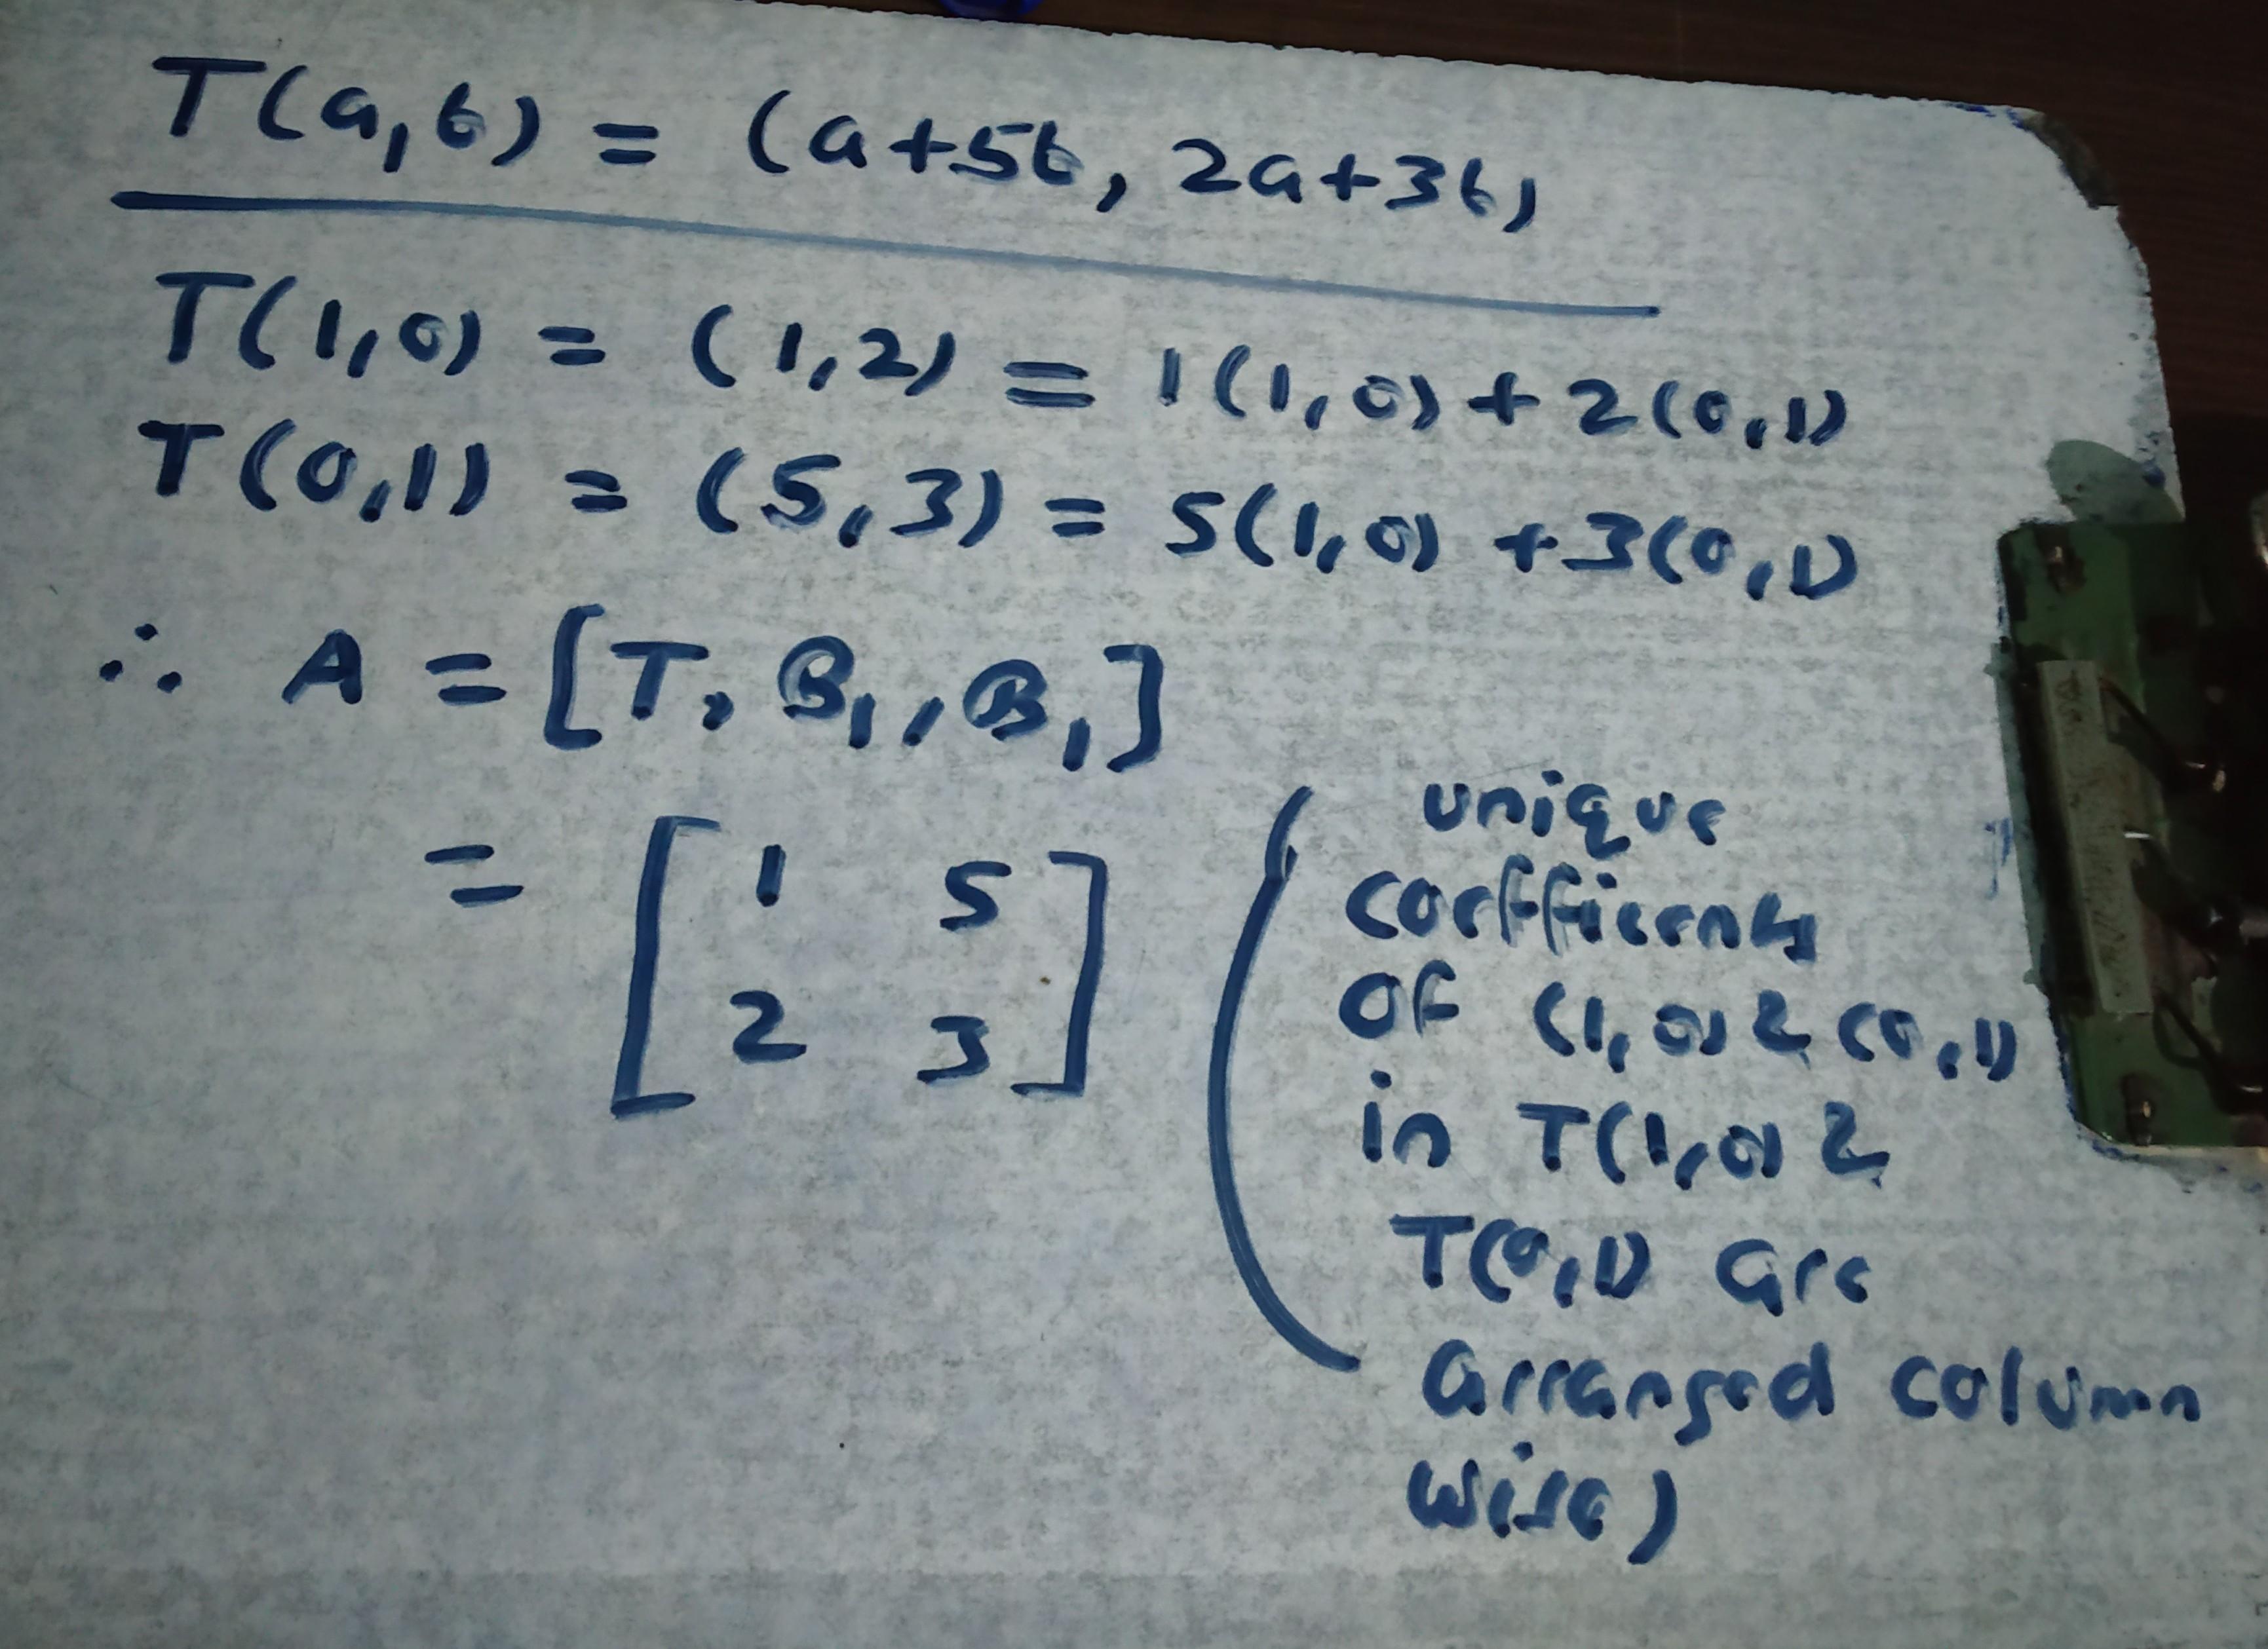 T(a,b) = (a+5b, 2a+3b)
T(1,0) = (1,2) = 1(1,0) + 2(0,1)
T(0,1) = (5,3) = 5(1,0) + 3(0,1)
∴ A = [T, B₁, B₁]
= [1 5
2 3]
(unique
coefficients
of (1,0) & (0,1)
in T(1,0) &
T(0,1) are
arranged column
wise)